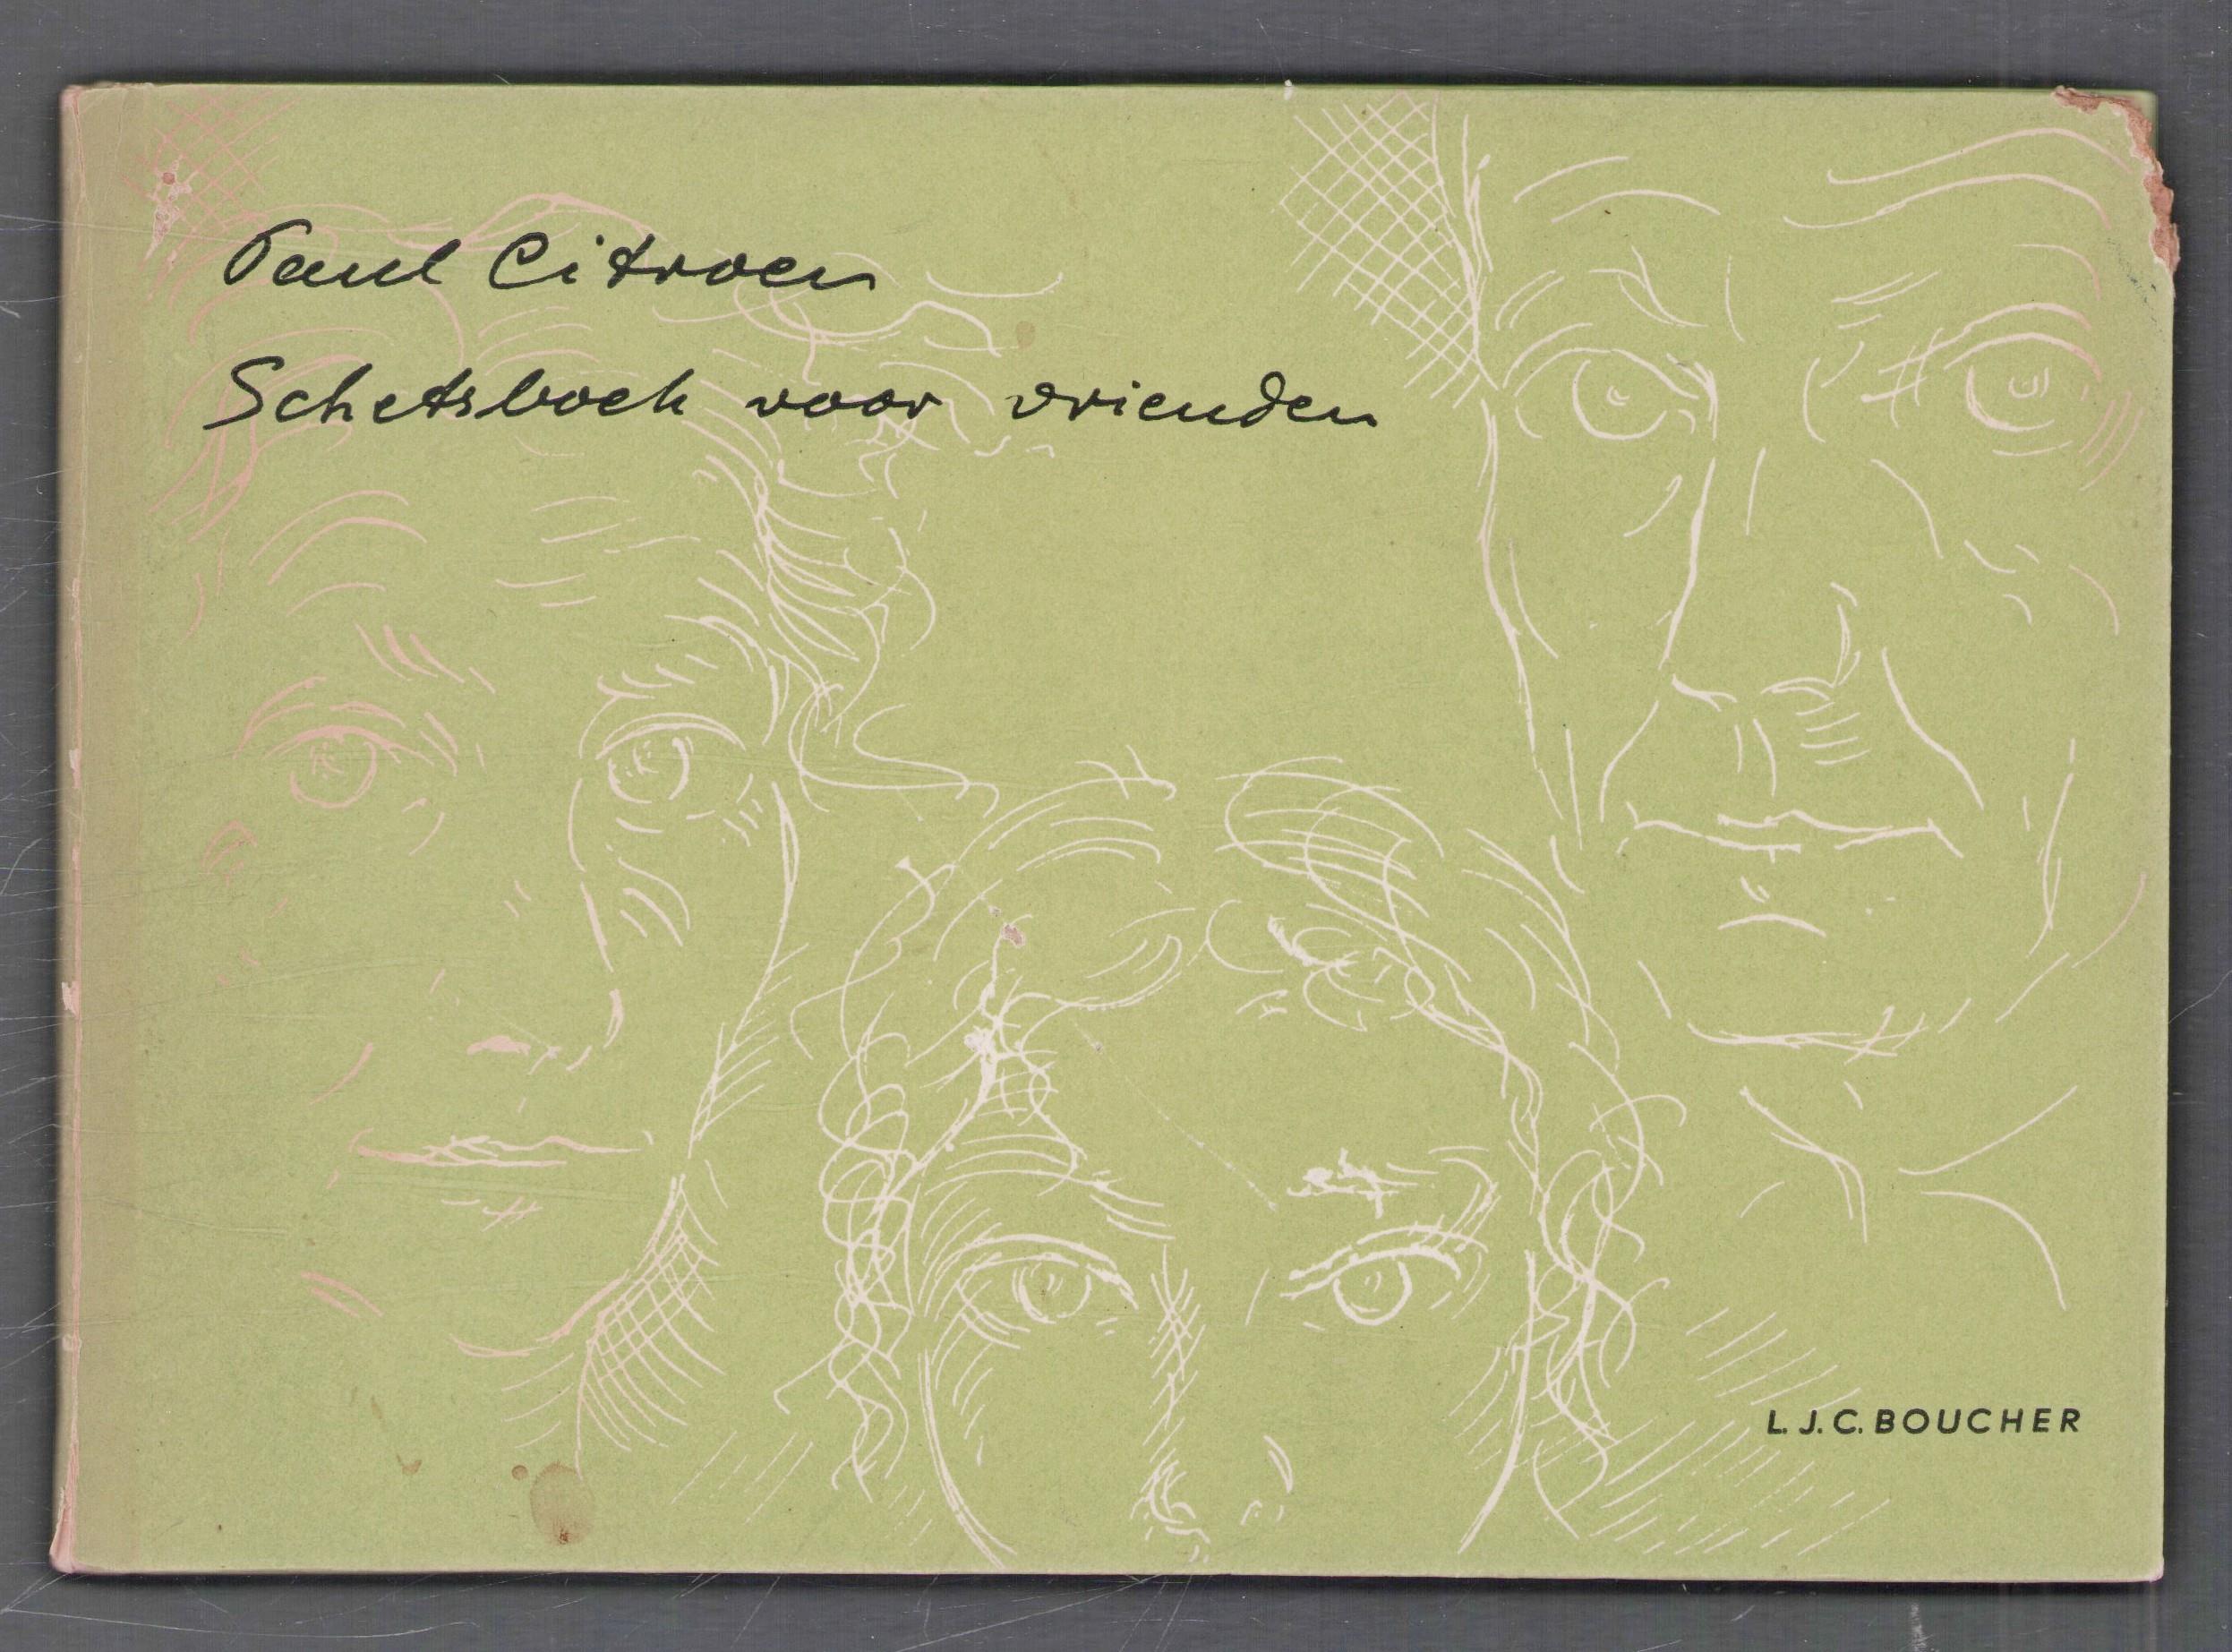 Paul Citroen
Schetsboek voor vrienden
L. J. C. BOUCHER